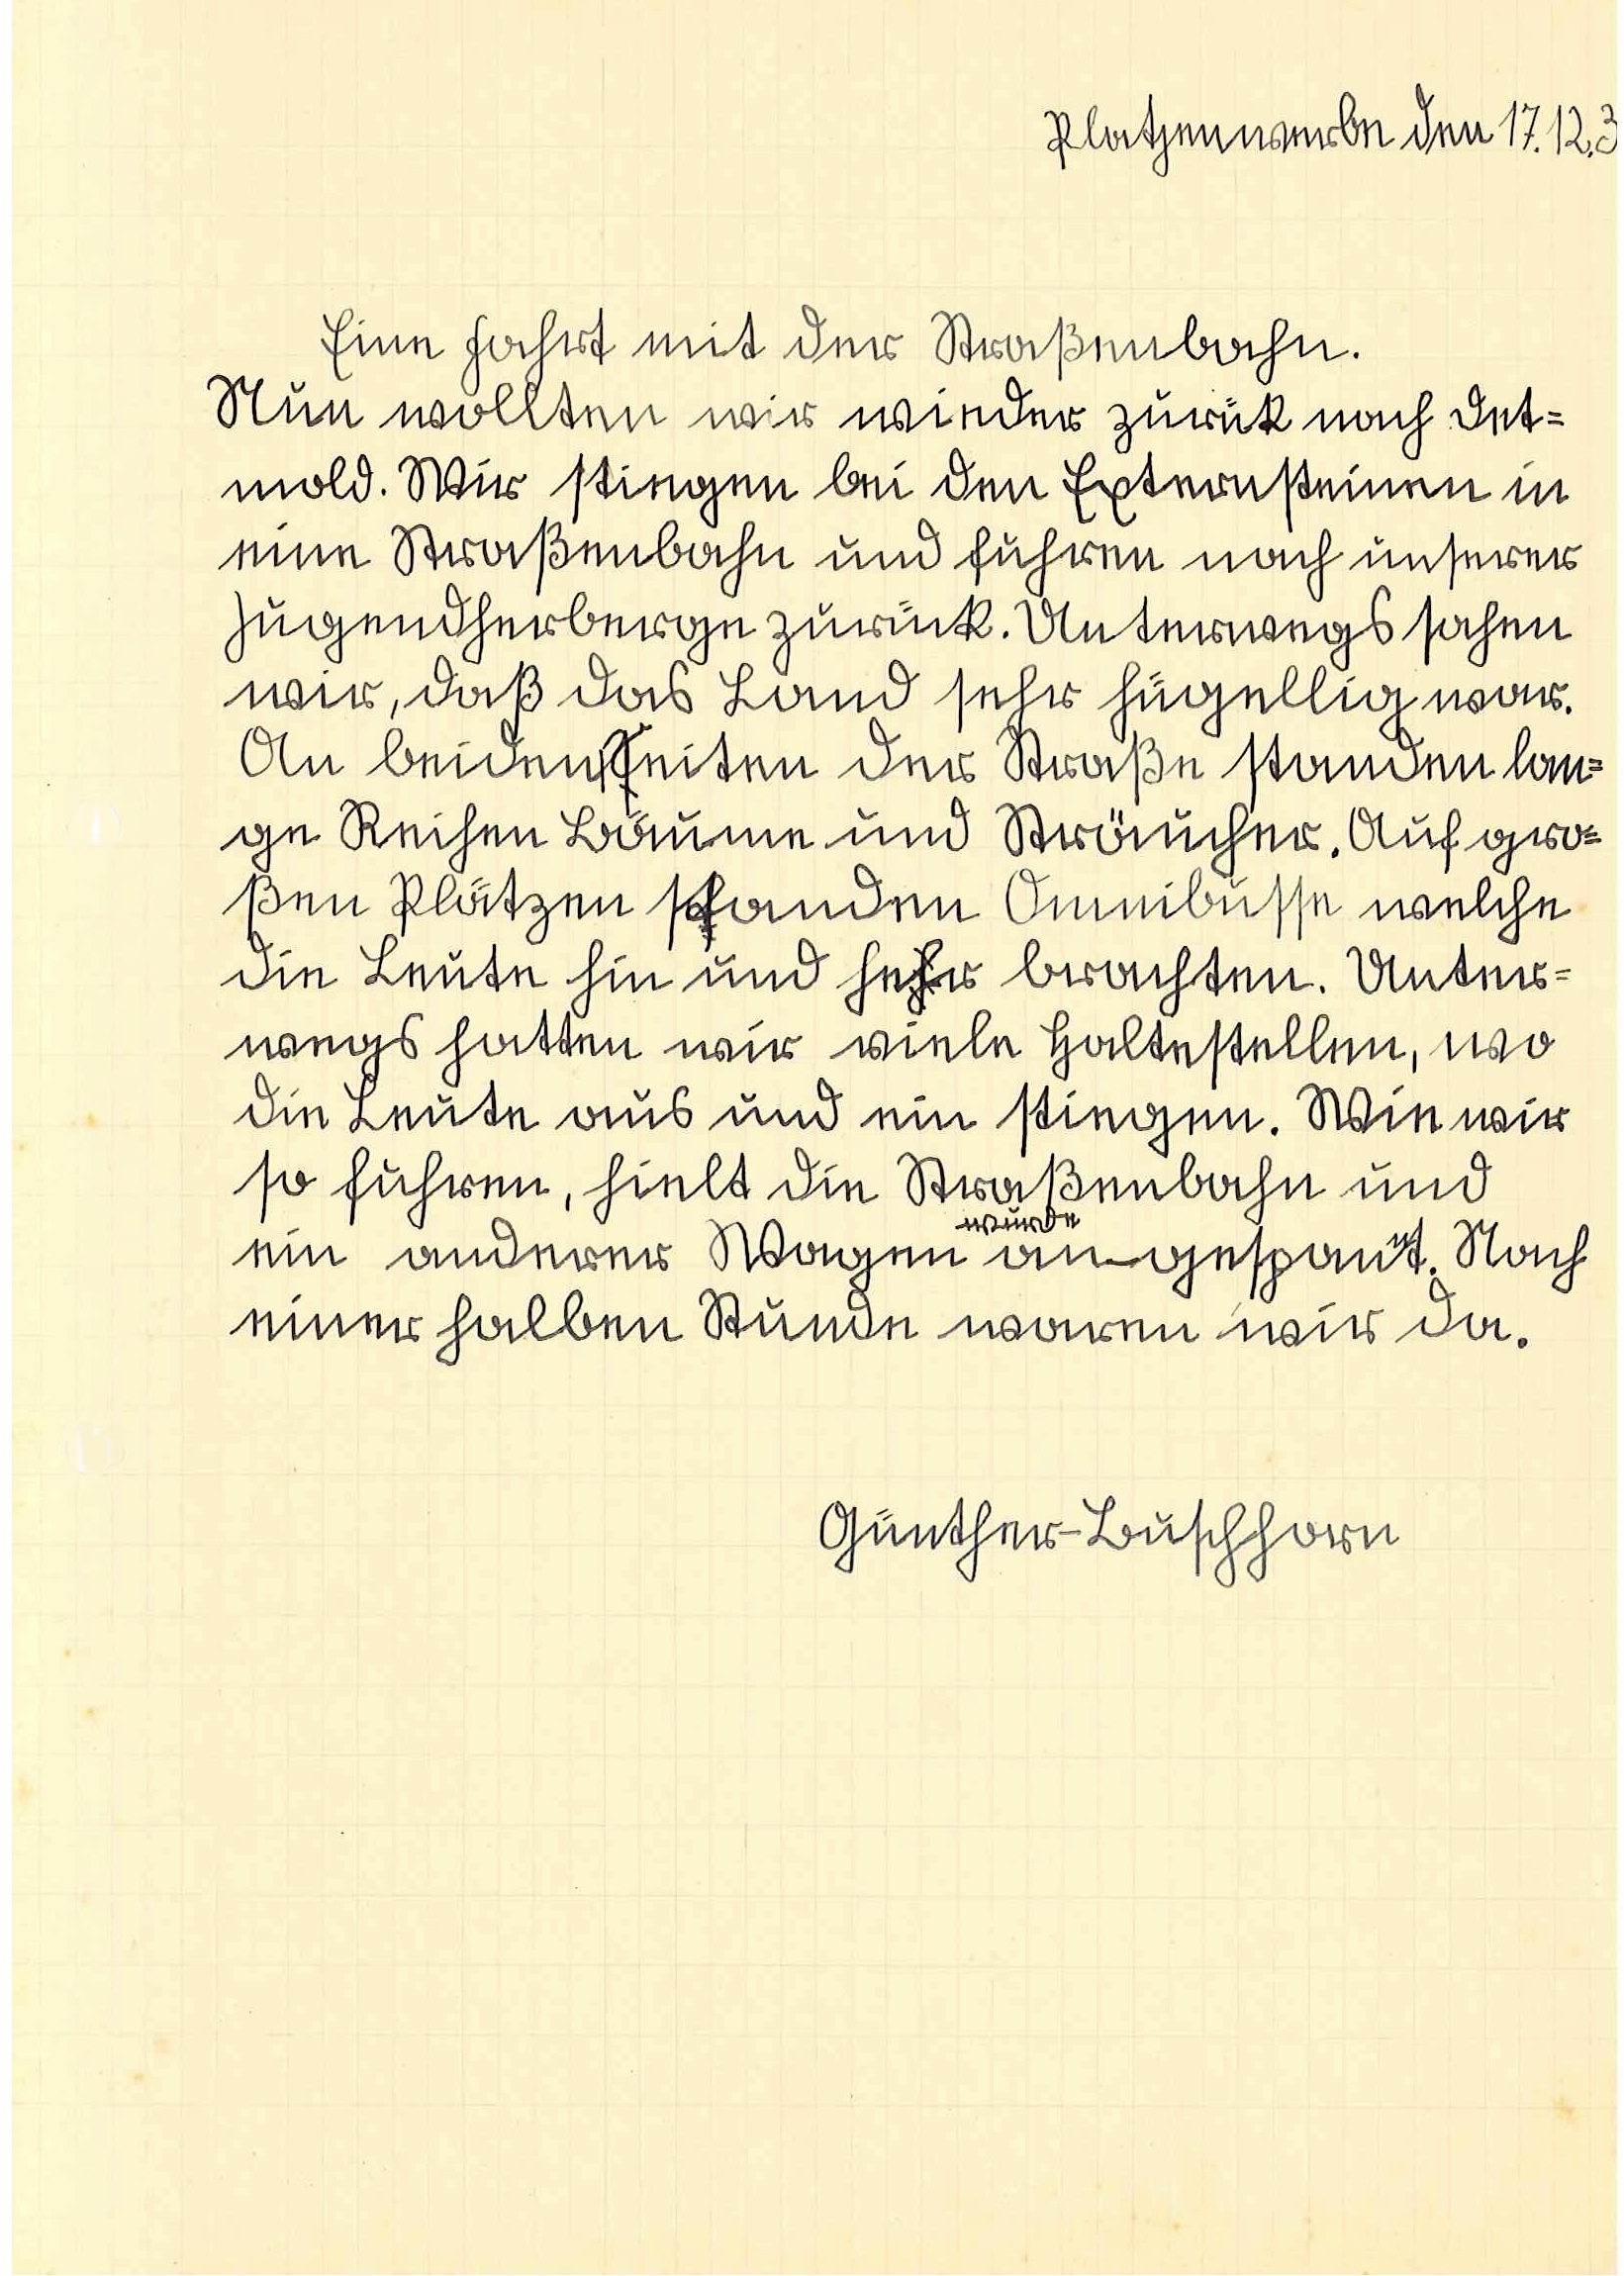 Platzenwerbe den 17.12.3
Eine Fahrt mit der Straßenbahn.
Nun wollten wir wieder zurük nach Det=
mold. Wir stiegen bei den Externsteinen in
eine Straßenbahn und fuhren nach unserer
Jugendherberge zurück. Unterwegs sahen
wir, daß das Land sehr hügellig war.
An beiden Seiten der Straße standen lan=
ge Reihen Bäume und Sträucher. Auf gro=
ßen Plätzen standen Omnibusse welche
die Leute hin und her brachten. Unter=
wegs hatten wir viele Haltestellen, wo
die Leute aus und ein stiegen. Wie wir
so fuhren, hielt die Straßenbahn und
wurde
ein anderer Wagen angespannt. Nach
einer halben Stunde waren wir da.
Günther-Buschhorn